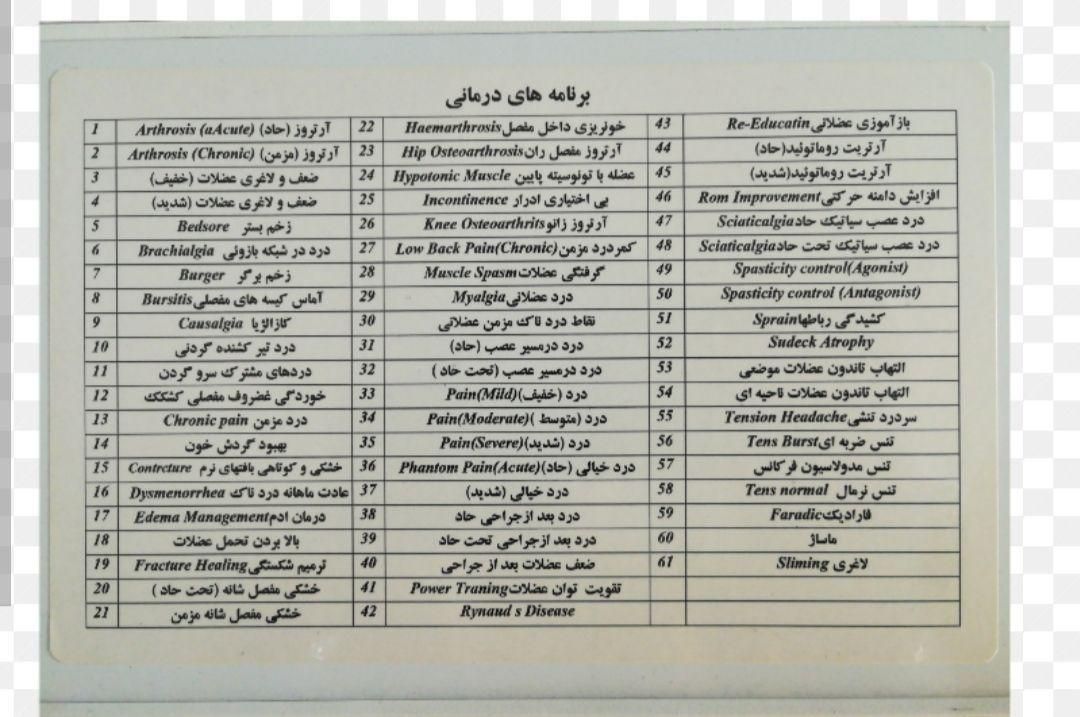 برنامه های درمانی
1 آرتروز (حاد) Arthrosis (aAcute)
2 آرتروز (مزمن) Arthrosis (Chronic)
3 ضعف و لاغری عضلات (خفیف)
4 ضعف و لاغری عضلات (شدید)
5 زخم بستر Bedsore
6 درد در شبکه بازوئی Brachialgia
7 زخم برگر Burger
8 آماس کیسه های مفصلی Bursitis
9 کازالژیا Causalgia
10 درد تیر کشنده گردنی
11 دردهای مشترک سرو گردن
12 خوردگی غضروف مفصلی کشکک
13 درد مزمن Chronic pain
14 بهبود گردش خون
15 خشکی و کوتاهی بافتهای نرم Contrcture
16 عادت ماهانه درد ناک Dysmenorrhea
17 درمان ادم Edema Management
18 بالا بردن تحمل عضلات
19 ترمیم شکستگی Fracture Healing
20 خشکی مفصل شانه (تحت حاد )
21 خشکی مفصل شانه مزمن
22 خونریزی داخل مفصل Haemarthrosis
23 آرتروز مفصل ران Hip Osteoarthrosis
24 عضله با تونوسیته پایین Hypotonic Muscle
25 بی اختیاری ادرار Incontinence
26 آرتروز زانو Knee Osteoarthrits
27 کمردرد مزمن Low Back Pain(Chronic)
28 گرفتگی عضلات Muscle Spasm
29 درد عضلانی Myalgia
30 نقاط درد ناک مزمن عضلانی
31 درد درمسیر عصب (حاد)
32 درد درمسیر عصب (تحت حاد )
33 درد (خفیف) Pain(Mild)
34 درد (متوسط ) Pain(Moderate)
35 درد (شدید) Pain(Severe)
36 درد خیالی (حاد) Phantom Pain(Acute)
37 درد خیالی (شدید)
38 درد بعد ازجراحی حاد
39 درد بعد ازجراحی تحت حاد
40 ضعف عضلات بعد از جراحی
41 تقویت توان عضلات Power Traning
42 Rynaud s Disease
43 بازآموزی عضلانی Re-Educatin
44 آرتریت روماتوئید(حاد)
45 آرتریت روماتوئید(شدید)
46 افزایش دامنه حرکتی Rom Improvement
47 درد عصب سیاتیک حاد Sciaticalgia
48 درد عصب سیاتیک تحت حاد Sciaticalgia
49 Spasticity control(Agonist)
50 Spasticity control (Antagonist)
51 کشیدگی رباطها Sprain
52 Sudeck Atrophy
53 التهاب تاندون عضلات موضعی
54 التهاب تاندون عضلات ناحیه ای
55 سردرد تنشی Tension Headache
56 تنس ضربه ای Tens Burst
57 تنس مدولاسیون فرکانس
58 تنس نرمال Tens normal
59 فارادیک Faradic
60 ماساژ
61 لاغری Sliming